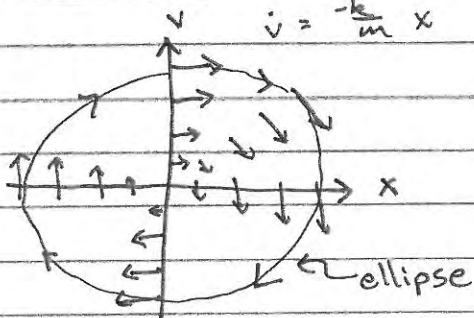 v
v̇ = -k/m x
x
ellipse